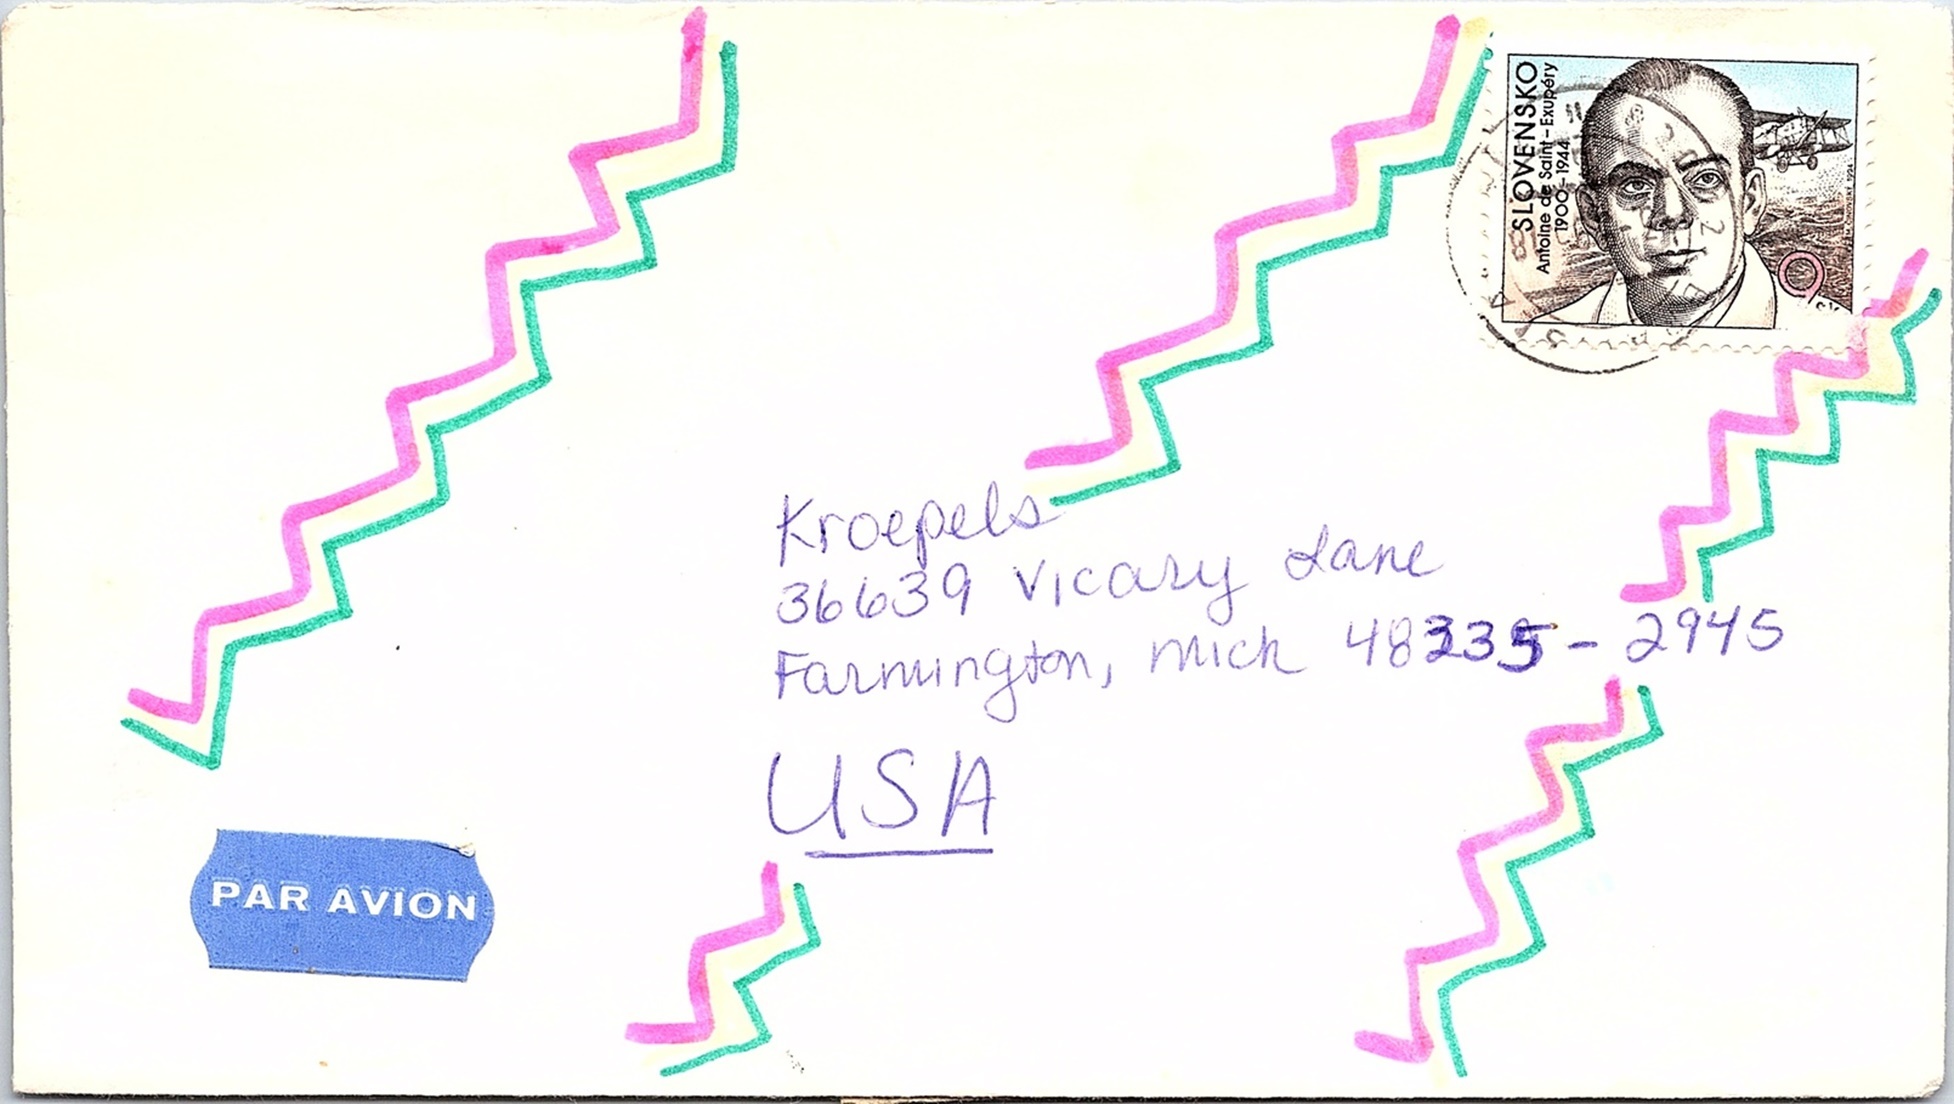 SLOVENSKO
Antoine de Saint-Exupéry
1900-1944
9
Kroepels
36639 Vicary Lane
Farmington, Mich 48335 - 2945
USA
PAR AVION